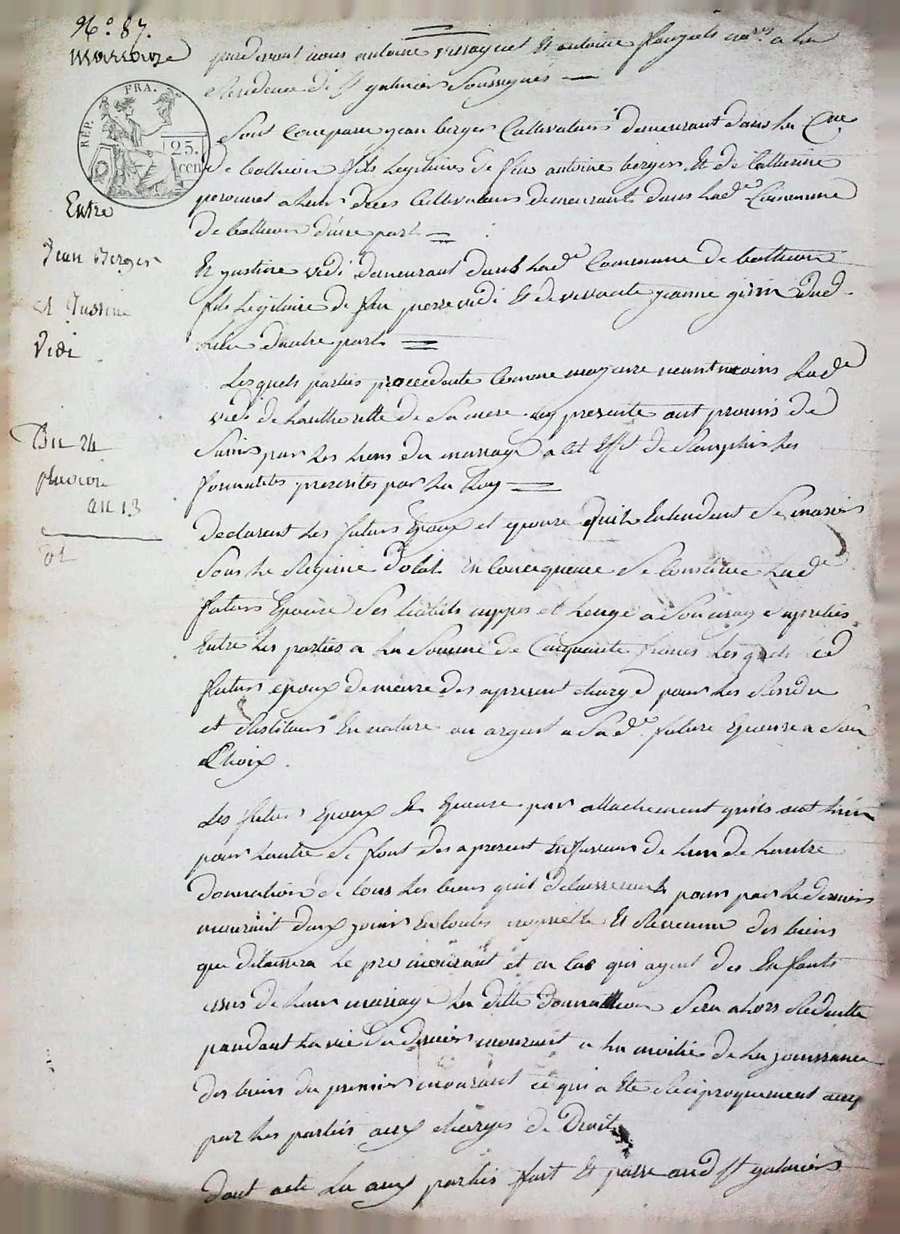 N.° 87.
mariage
RÉP. FRA.
25.
cen
Entre
Jean Berger
et Justine
Vidi
Du 24
pluviose
an 13
pardevant nous antoine et antoine no.res a la
Residence de St galmier Soussignés
Sont Comparu jean berger Cultivateur demeurant dans la Cne
de fils Legitime de feu antoine berger Et de Catherine
Cultivateurs demeurants dans lad.e Commune
de d'une part
Et justine vidi demeurant dans lad.e Commune de
fille Legitime de feu pierre vidi Et de jeanne dud.
Lieu d'autre part
Lesquels parties procedante Comme majeure neantmoins Lad.e
vidi de Lauthoritte de Sa mere icy presente ont promis de
S'unir par les liens du mariage a cet Effet de Remplir les
formalités prescrites par la Loy
Declarent les futurs Epoux et epouse quil Entendent Se marier
Sous le Regime Dotal En Consequence Se Constitue Lad.e
future Epouse Ses habits nippes et Linge a Son usage apreties
Entre les parties a la Somme de Cinquante francs Lesquels led
futur epoux demeure des apresent chargé pour les Rendre
et Restituer En nature ou argent a Sad.e future Epouse a Son
Choix.
Les futurs Epoux Et Epouse par attachement quils ont Lun
pour Lautre Se font des apresent de Lun de Lautre
donnation de tous les biens quil delaisseront pour par le dernier
mourant deux jouir En toutes propriette Et Revenu des biens
que delaissera le pre mourant et en Cas quis ayent des Enfants
issus de Leur mariage La ditte donnation Sera alors Reduitte
pendant la vie du dernier mourant a La moitié de La jouissance
des biens du premier mourant ce qui a Eté Reciproquement
par les parties aux charges de Droit
Dont acte Lu aux parties fait Et passé aud St galmier